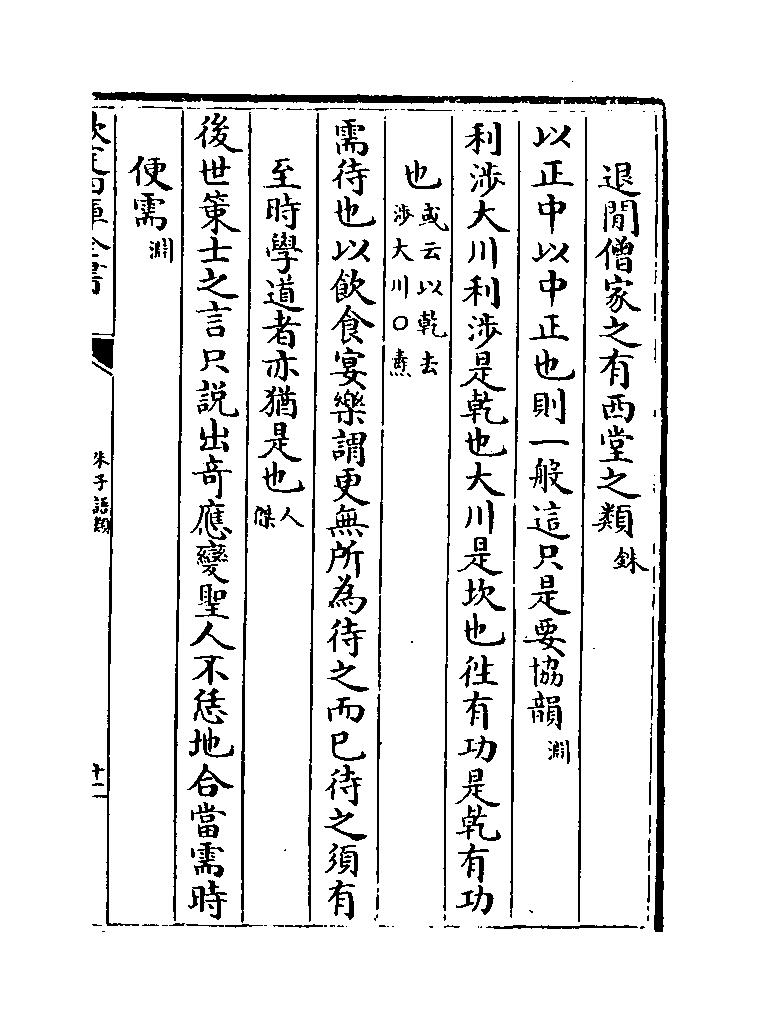 退閒僧家之有西堂之類銖
以正中以中正也則一般這只是要協韻淵
利涉大川利涉是乾也大川是坎也徃有功是乾有功
也或云以乾去涉大川○𤋮
需待也以飲食宴樂謂更無所為待之而已待之須有
至時學道者亦猶是也人傑
後世策士之言只説出竒應變聖人不恁地合當需時
便需淵
欽定四庫全書
朱子語類
十二